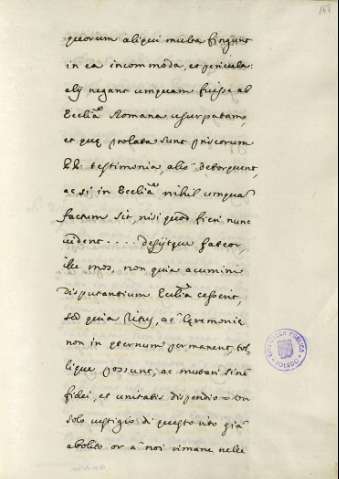 quorum aliqui multa fingunt
in ea incommoda, et pericula:
alij negant umquam fuisse ab
Eccliã Romana usurpatam,
et quę prolata sunt priscorum
testimonia, alio detorquent,
ac si in Eccliã nihil umquã
factum sit, nisi quod fieri nunc
vident.... desijtque fateor,
ille mos, non quia acumini
disputantium Eccliã cesserit,
sed quia Ritus, ac Ceremonię
non in ęternum permanent, tol-
lique possunt, ac mutari sine
fidei, et unitatis dispendio = Un
solo vestigio di questo rito già
abolito or a noi rimane nelle
BIBLIOTECA PUBLICA
TOLEDO